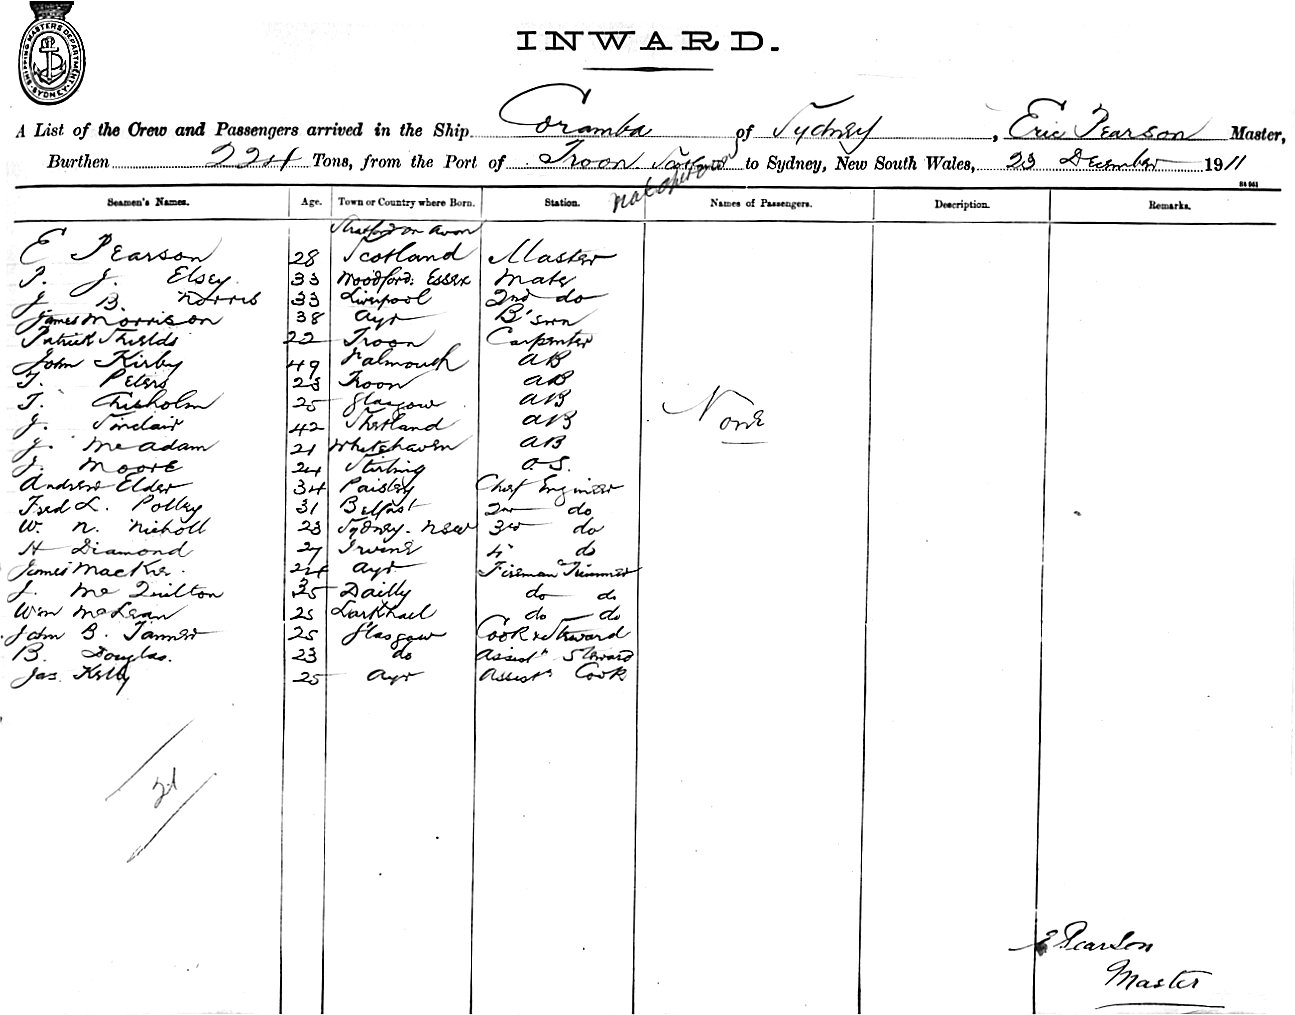 SHIPPING MASTERS DEPARTMENT SYDNEY
INWARD.
A List of the Crew and Passengers arrived in the Ship Coramba of Sydney, Eric Pearson Master,
Burthen 224 Tons, from the Port of Troon Scotland to Sydney, New South Wales, 23 December 1911
84 961
Seamen's Names. Age. Town or Country where Born. Station. Names of Passengers. Description. Remarks.
Stratford on Avon
E Pearson 28 Scotland Master
T. J. Elsey 33 Woodford. Essex Mate
J B. Norris 33 Liverpool 2nd do
James Morrison 38 Ayr B'swn
Patrick Shields 22 Troon Carpenter
John Kirby 49 Falmouth AB
T. Peters 23 Troon AB
T. Chisholm 25 Glasgow AB
None
J. Sinclair 42 Shetland AB
J. McAdam 21 Whitehaven AB
J. Moore 24 Stirling O.S.
Andrew Elder 34 Paisley Chief Engineer
Fred L. Polley 31 Belfast 2nd do
W. N. Nicholl 23 Sydney. NSW 3rd do
H Diamond 27 Irvine 4 do
James MacKie. 24 Ayr Fireman Trimmer
J. McQuilton 35 Dailly do do
Wm McLean 25 Larkhall do do
John B. Tanner 25 Glasgow Cook & Steward
B. Douglas. 23 do Assist Steward
Jas. Kelly 25 Ayr Assist Cook
21
E Pearson
Master